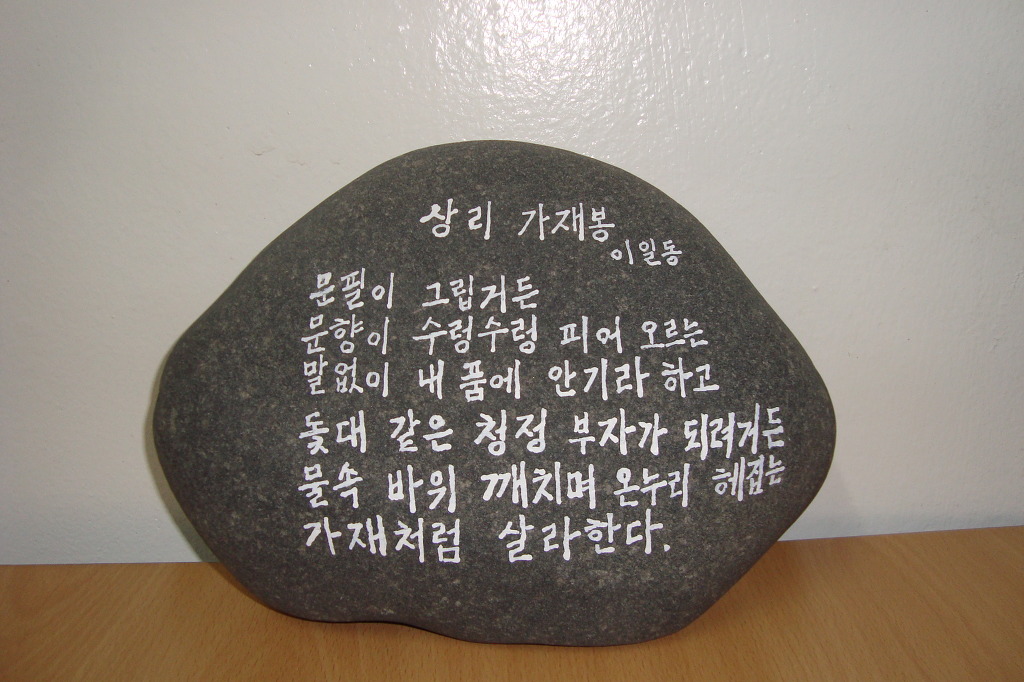 상리 가재봉
이일동
문필이 그립거든
문향이 수렁수렁 피어 오르는
말없이 내 품에 안기라 하고
돛대 같은 청정 부자가 되려거든
물속 바위 깨치며 온누리 헤집는
가재처럼 살라한다.